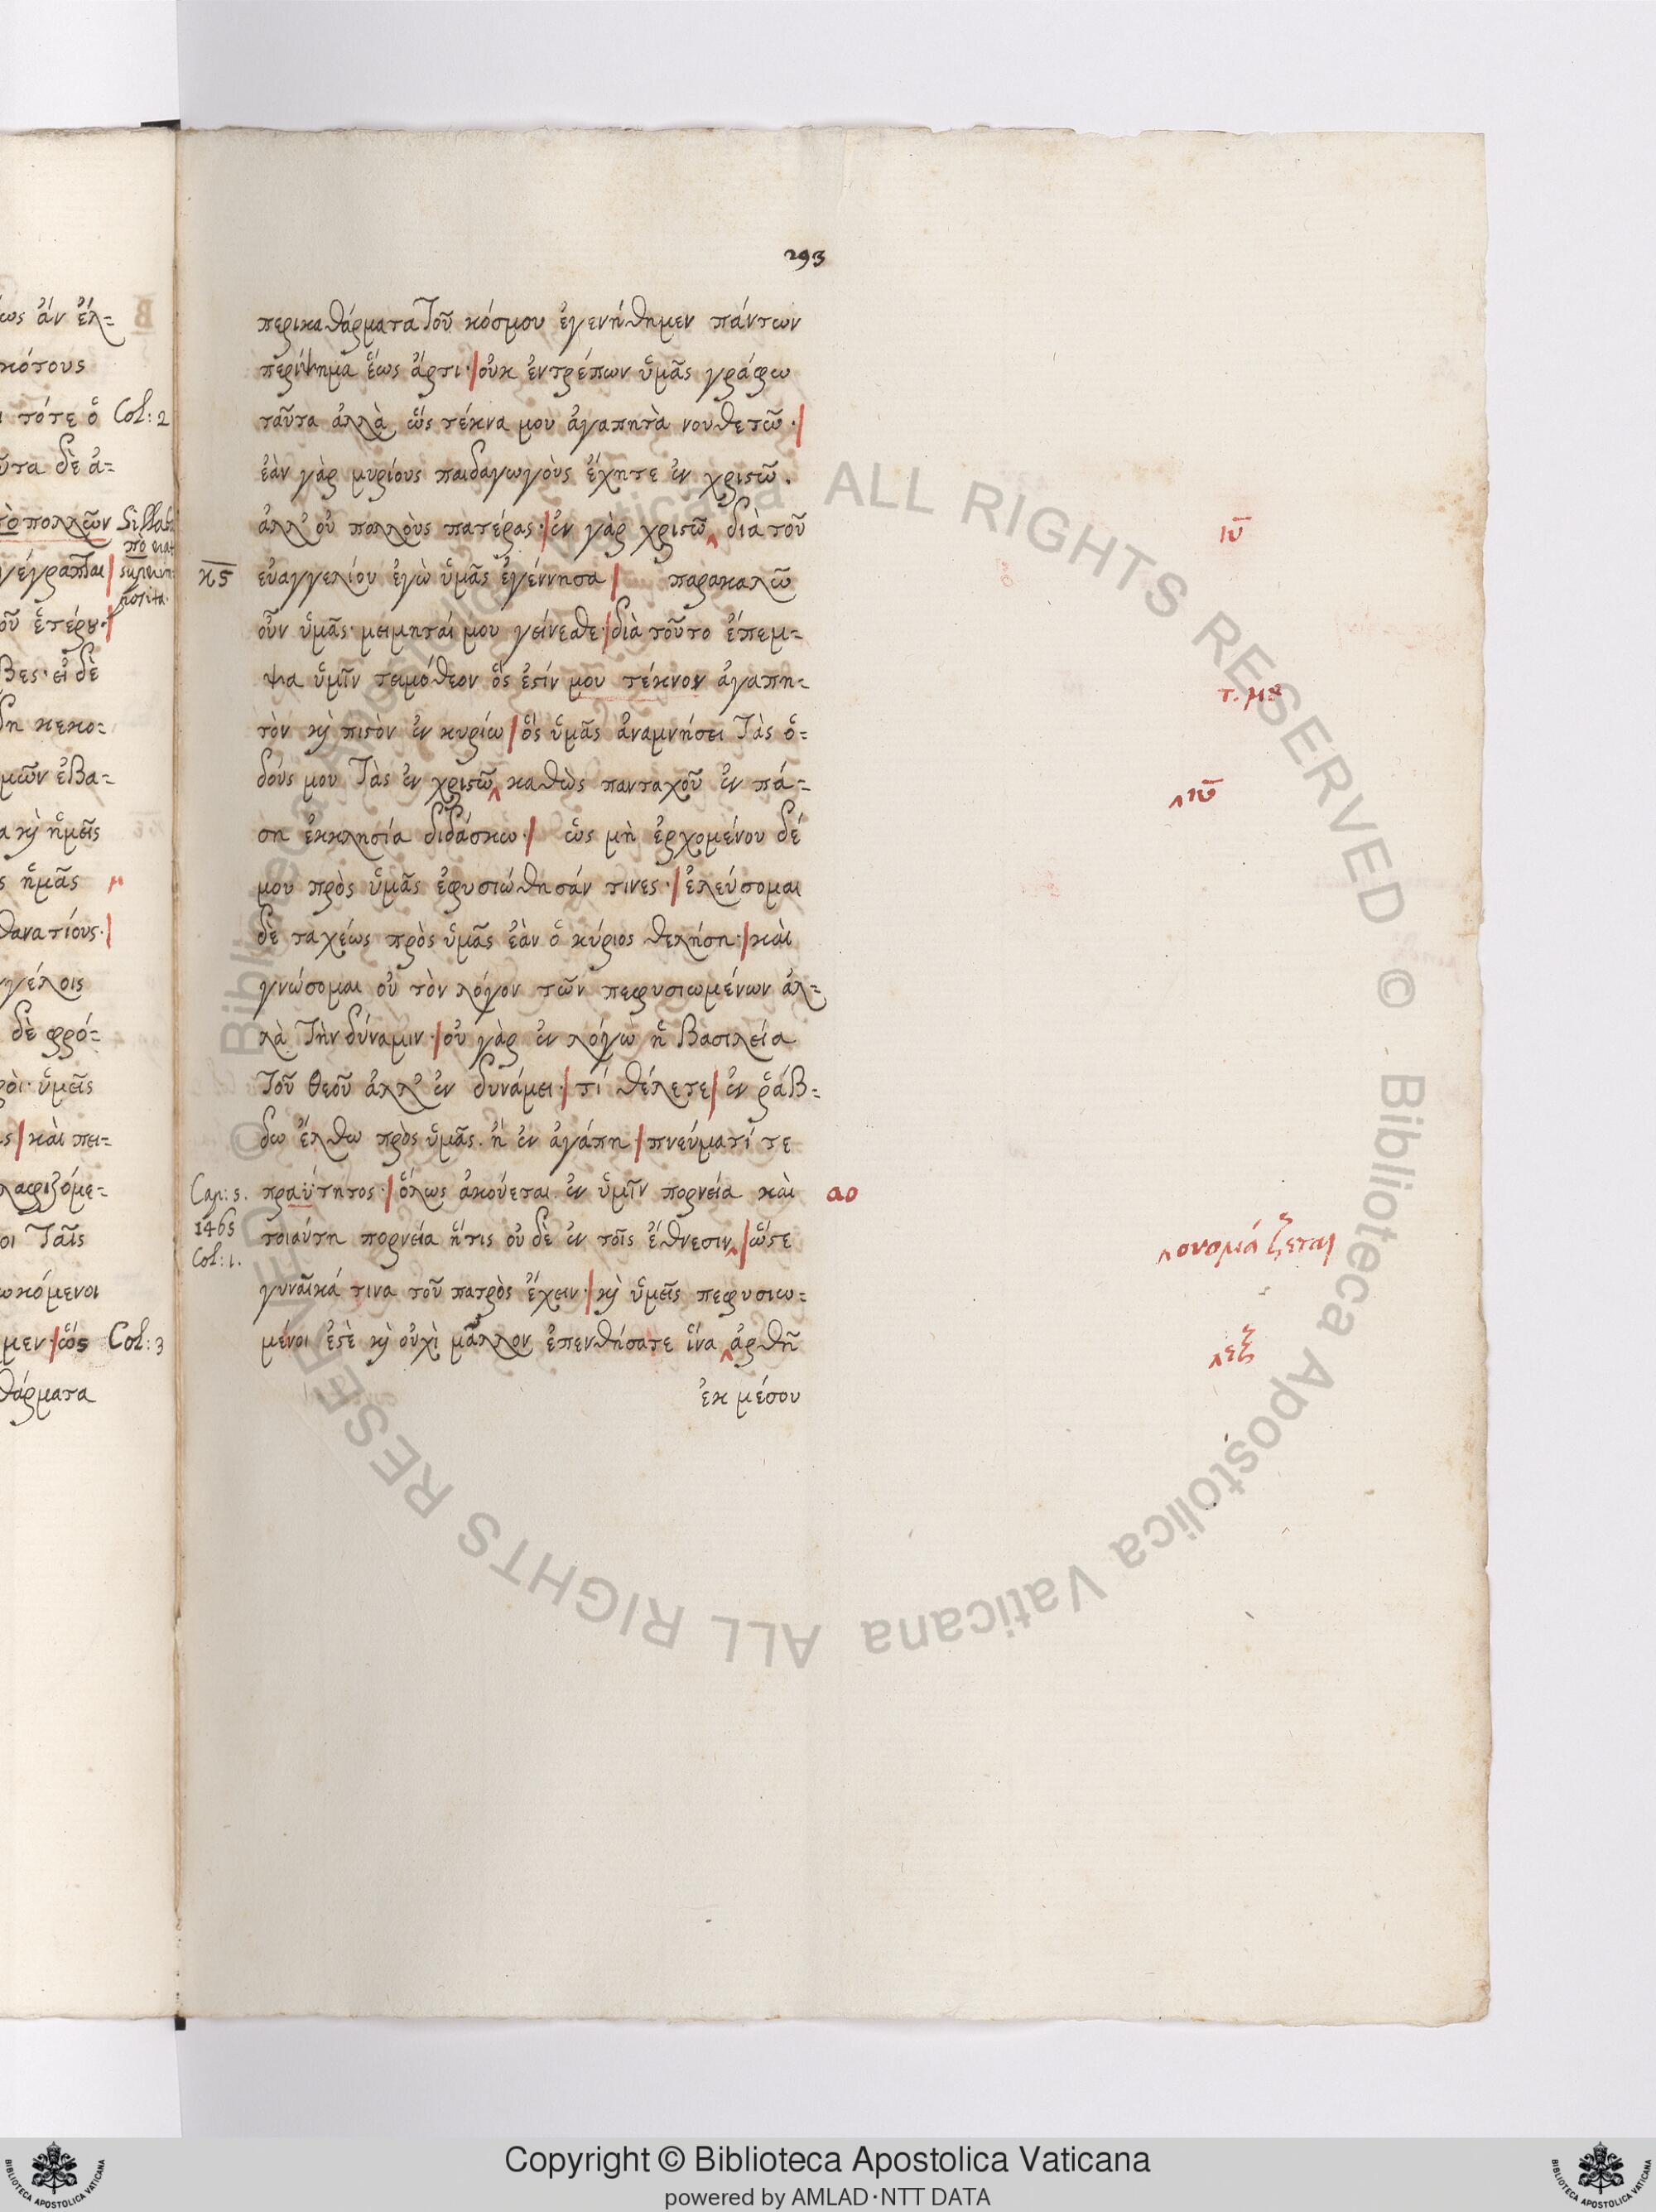 293
ως ἂν ἔλ=
κότους
τότε ὁ Col: 2
ῦτα δὲ ἀ=
τὸ πολλῶν
γέγραπται
οῦ ἑτέρȣ·
Βες· εἰ δὲ
δη κεκο=
μῶν ἐβα=
α κὶ ἡμεῖς
ς ἡμᾶς
θανατίους·
γέλοις
δὲ φρό=
ροὶ· ὑμεῖς
ς καὶ πει=
λαφιζόμε=
οι Ταῖς
ωκόμενοι
μεν· ὡς Col: 3
θάρματα
περικαθάρματα Τοῦ κόσμου ἐγενήθημεν πάντων
περίψημα ἕως ἄρτι· οὐκ ἐντρέπων ὑμᾶς γράφω
ταῦτα ἀλλὰ ὡς τέκνα μου ἀγαπητὰ νουθετῶ·
ἐὰν γὰρ μυρίους παιδαγωγοὺς ἔχητε ἐν χριστῶ.
ἀλλ' οὐ πολλοὺς πατέρας· ἐν γὰρ χριστῶ ‸ διὰ τοῦ ιῡ
κς εὐαγγελίου ἐγὼ ὑμᾶς ἐγέννησα παρακαλῶ
οὖν ὑμᾶς· μειμηταί μου γείνεσθε· διὰ τοῦτο ἔπεμ=
ψα ὑμῖν τειμόθεον ὅς ἐστίν μου τέκνον ἀγαπη= τ. μȣ
τὸν κὶ πιστὸν ἐν κυρίω ὃς ὑμᾶς ἀναμνήσει Τὰς ὁ=
δούς μου Τὰς ἐν χριστῶ ‸ καθὼς πανταχοῦ ἐν πά= ‸ ιῡ
ση ἐκκλησία διδάσκω· ὡς μὴ ἐρχομένου δέ
μου πρὸς ὑμᾶς ἐφυσιώθησάν τινες· ἐλεύσομαι
δὲ ταχέως πρὸς ὑμᾶς ἐὰν ὁ κύριος θελήση· καὶ
γνώσομαι οὐ τὸν λόγον τῶν πεφυσιωμένων ἀλ=
λὰ Τὴν δύναμιν· οὐ γὰρ ἐν λόγω ἡ Βασιλεία
Τοῦ θεοῦ ἀλλ' ἐν δυνάμει· τί θέλετε ἐν ῥάβ=
δω ἔλθω πρὸς ὑμᾶς. ἢ ἐν ἀγάπη πνεύματί τε
Cap: 5. πραύτητος· ὅλως ἀκούεται ἐν ὑμῖν πορνεία καὶ αο
1465 τοιαύτη πορνεία ἥτις οὐ δὲ ἐν τοῖς ἔθνεσιν ‸ ὥστε ‸ ονομάζεται
Col: 1.
γυναῖκά τινα τοῦ πατρὸς ἔχειν· κὶ ὑμεῖς πεφυσιω=
μένοι ἐστὲ κὶ οὐχὶ μᾶλλον ἐπενθήσατε ἵνα ‸ ἀρθῆ ‸ εξ
ἐκ μέσου